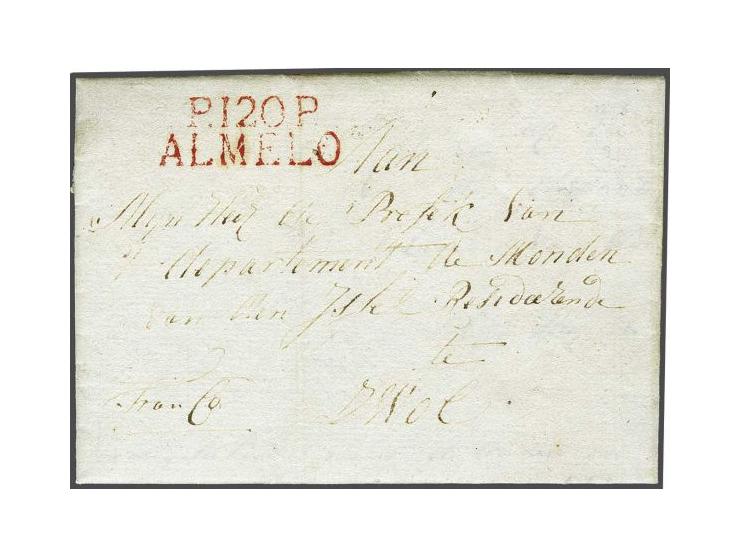 P.120.P.
ALMELO
Aan
Mijn Heer de Prefek van
't departement de Monden
van den Issel Resideerende
te
Zwol
Fran Co